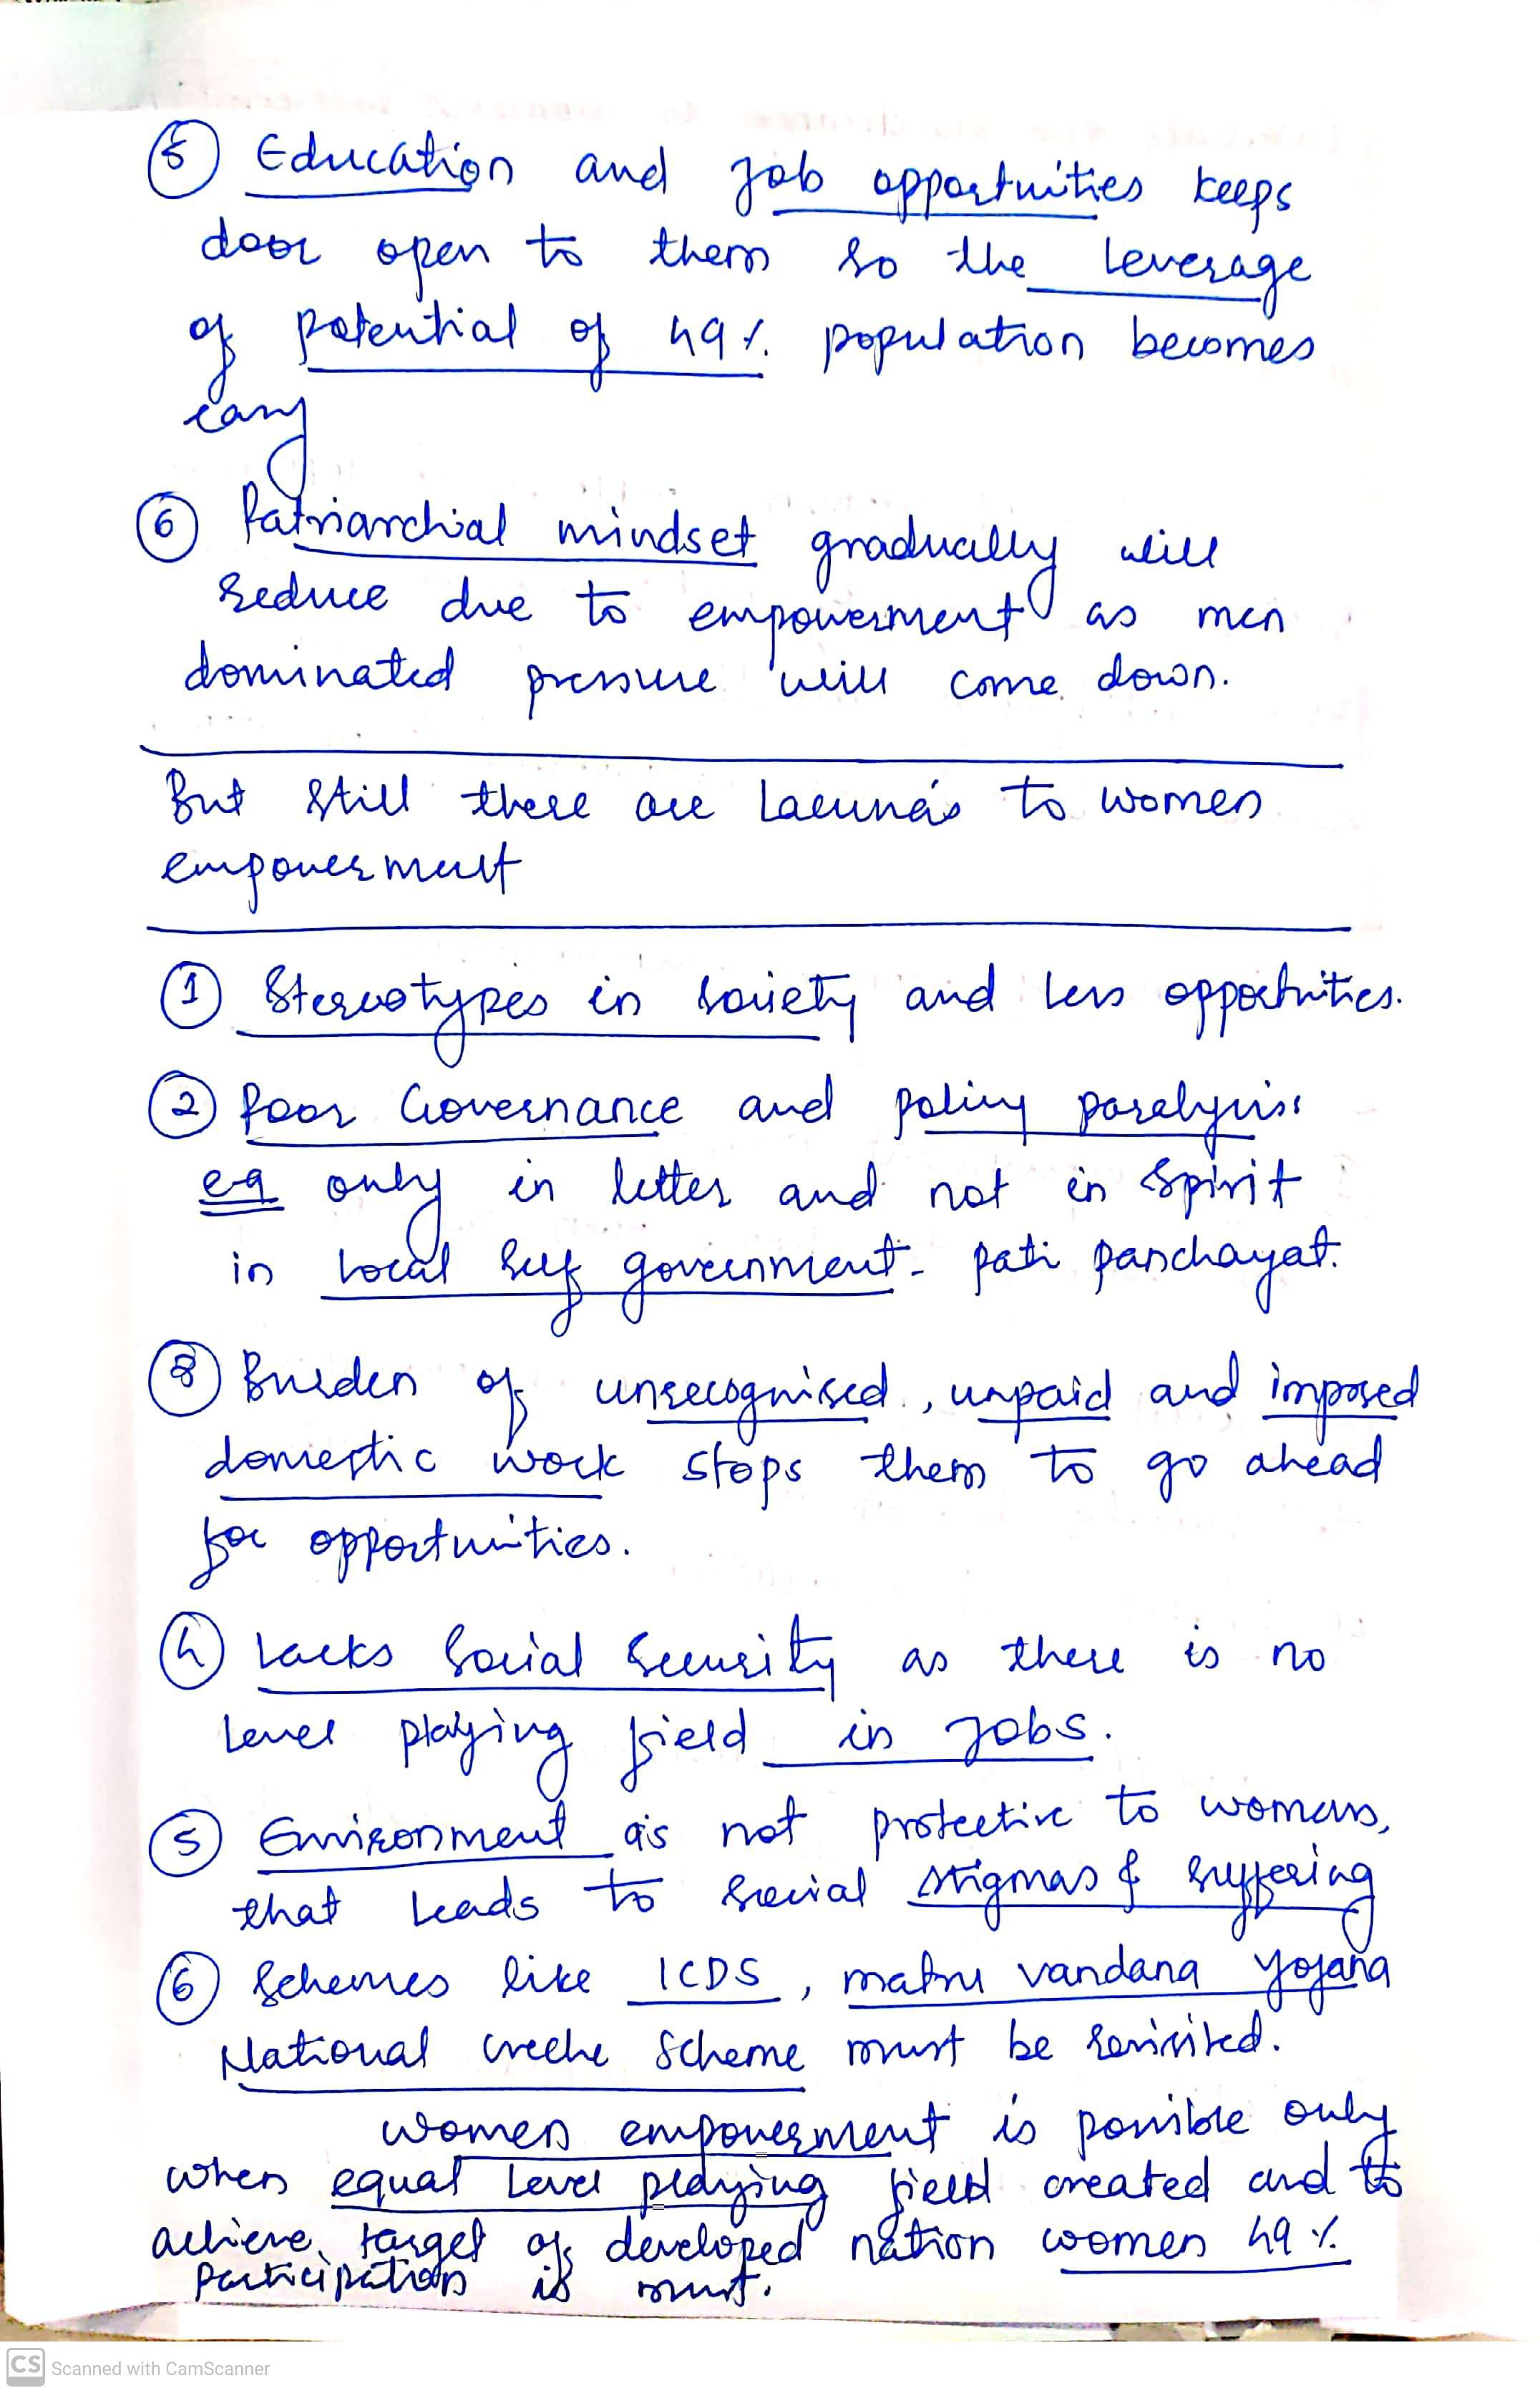 ⑤ Education and Job opportunities keeps
door open to them so the leverage
of potential of 49% population becomes
easy
⑥ Patriarchial mindset gradually will
reduce due to empowerment as men
dominated pressure will come down.
But still there are Lacuna's to women
empowerment
① Stereotypes in society and less opportunities.
② Poor Governance and policy paralysis.
eg only in letter and not in Spirit
in local self government - pati panchayat.
③ Burden of unrecognised, unpaid and imposed
domestic work stops them to go ahead
for opportunities.
④ Lacks Social Security as there is no
level playing field in Jobs.
⑤ Environment is not protective to womens,
that leads to social stigmas & suffering
⑥ Schemes like ICDS, matru vandana yojana
National creche Scheme must be revisited.
women empowerment is possible only
when equal level playing field created and to
achieve target of developed nation women 49%
Participation is must.
CS Scanned with CamScanner